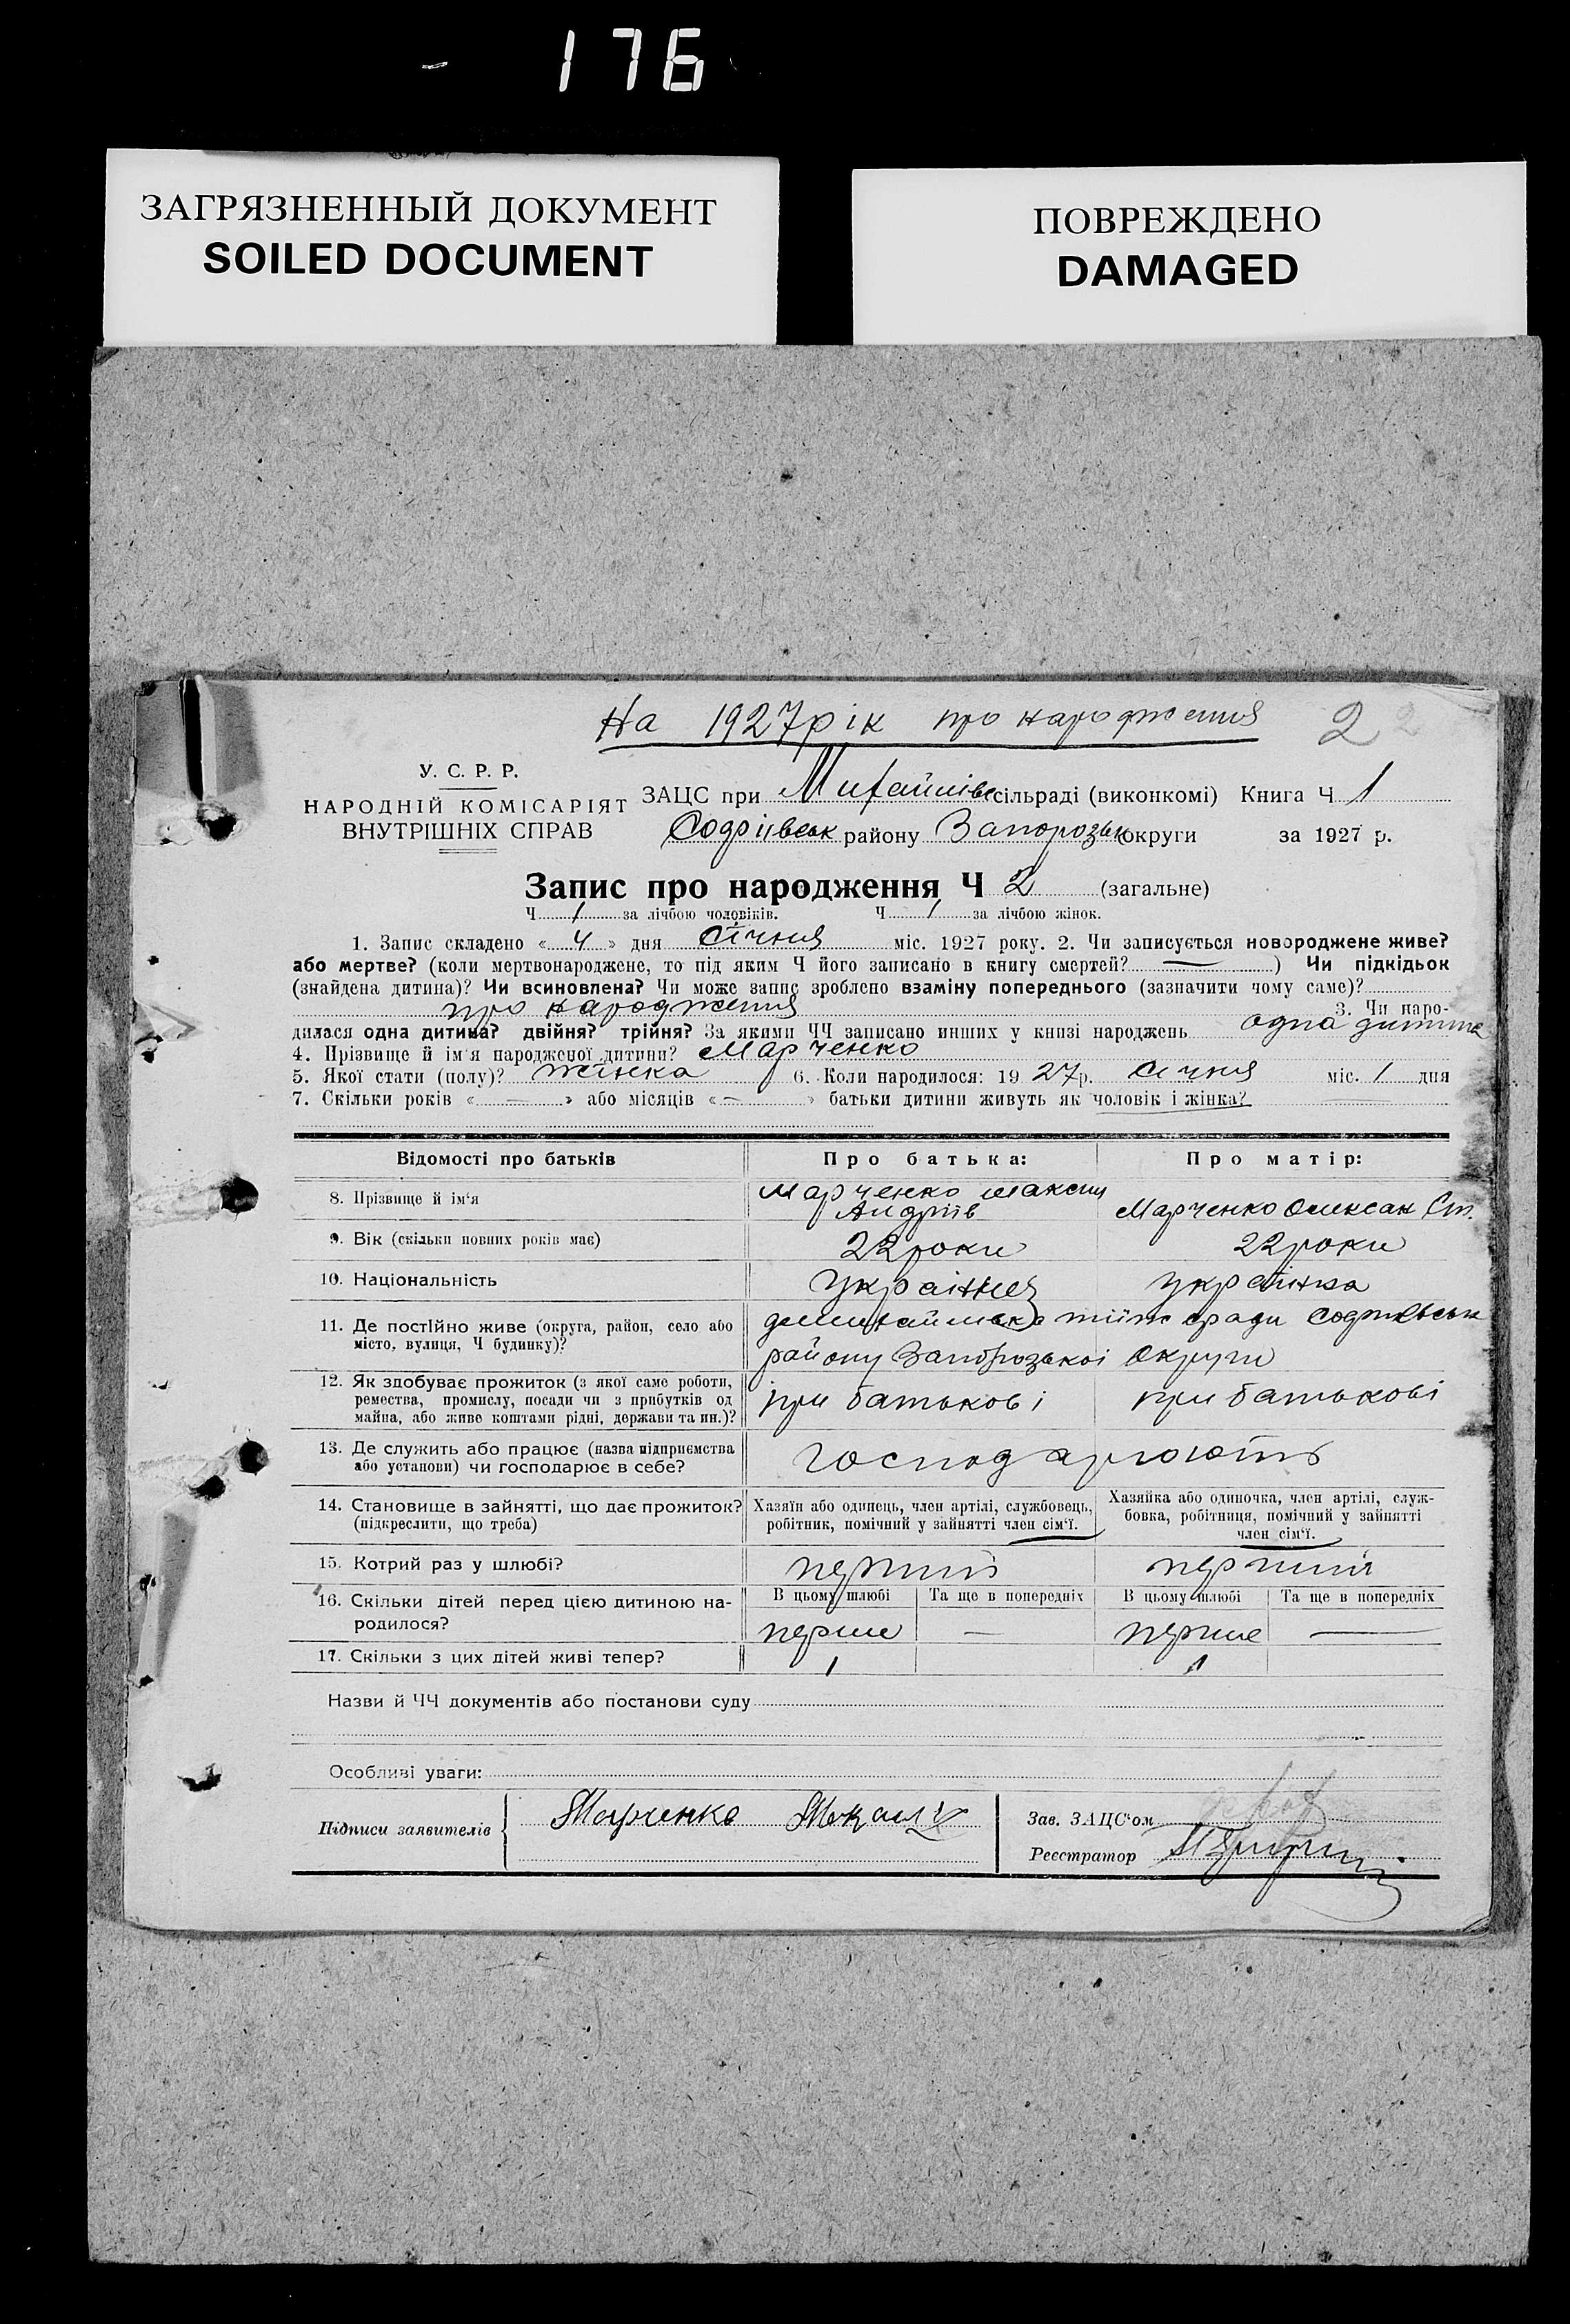 176
ЗАГРЯЗНЕННЫЙ ДОКУМЕНТ
SOILED DOCUMENT
ПОВРЕЖДЕНО
DAMAGED
На 1927 рік про народження 2 2
У. С. Р. Р.
НАРОДНІЙ КОМІСАРІЯТ
ВНУТРІШНІХ СПРАВ
ЗАЦС при Михайлівс сільраді (виконкомі) Книга Ч 1
Софіївськ району Запорозьк округи за 1927 р.
Запис про народження Ч 2 (загальне)
Ч 1 за лічбою чоловіків. Ч 1 за лічбою жінок.
1. Запис складено « 4 » дня Січня міс. 1927 року. 2. Чи записується новороджене живе?
або мертве? (коли мертвонароджене, то під яким Ч його записано в книгу смертей? — ) Чи підкідьок
(знайдена дитина)? Чи всиновлена? Чи може запис зроблено взаміну попереднього (зазначити чому саме)?
про народження 3. Чи наро-
дилася одна дитина? двійня? трійня? За якими ЧЧ записано инших у книзі народжень одна дитина
4. Прізвище й ім'я народженої дитини? Марченко
5. Якої стати (полу)? жінка 6. Коли народилося: 19 27 р. Січня міс. 1 дня
7. Скільки років « — » або місяців « — » батьки дитини живуть як чоловік і жінка? —
Відомості про батьків
Про батька:
Про матір:
8. Прізвище й ім'я
Марченко Максим
Андріїв
Марченко Олексан Ст.
9. Вік (скільки повних років має)
22 роки
22 роки
10. Національність
Українец
Українка
11. Де постІйно живе (округа, район, село або
місто, вулиця, Ч будинку)?
району Запорозької Округи
12. Як здобуває прожиток (з якої саме роботи,
ремества, промислу, посади чи з прибутків од
майна, або живе коштами рідні, держави та ин.)?
при батькові
при батькові
13. Де служить або працює (назва підприємства
або установи) чи господарює в себе?
господарюють
14. Становище в зайнятті, що дає прожиток?
(підкреслити, що треба)
Хазяїн або одинець, член артілі, службовець,
робітник, помічний у зайнятті член сім'ї.
Хазяйка або одиночка, член артілі, служ-
бовка, робітниця, помічний у зайнятті
член сім'ї.
15. Котрий раз у шлюбі?
перший
перший
16. Скільки дітей перед цією дитиною на-
родилося?
В цьому шлюбі
Та ще в попередніх
В цьому шлюбі
Та ще в попередніх
перше
—
перше
—
17. Скільки з цих дітей живі тепер?
1
1
Назви й ЧЧ документів або постанови суду
Особливі уваги:
Підписи заявителів
Марченко
Зав. ЗАЦС'ом
Реєстратор